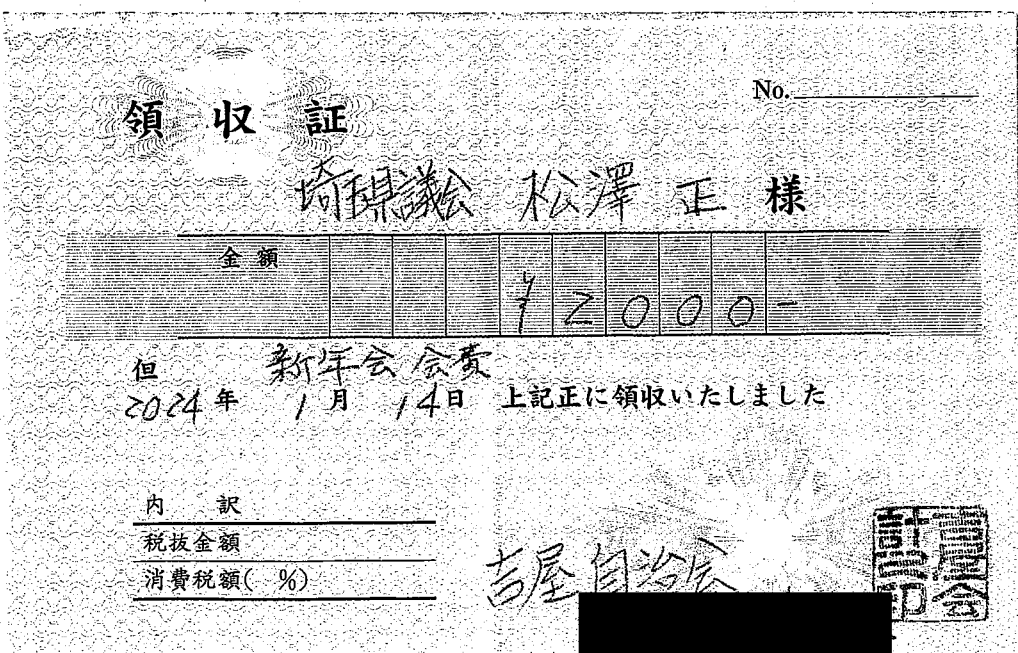 領 収 証
No.
埼玉県議会 松澤 正 様
金 額
¥2000-
但 新年会 会費
2024年 1月 14日 上記正に領収いたしました
内 訳
税抜金額
消費税額( %)
吉屋自治会